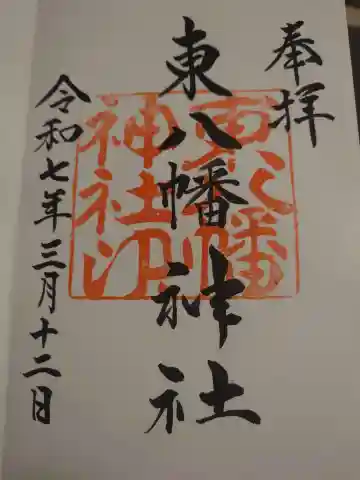 奉拝
東八幡神社
東八幡
神社印
令和七年三月十二日